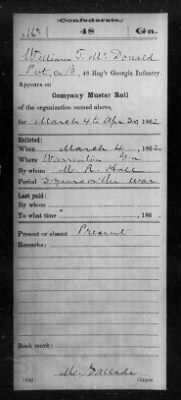 Confederate.
48
Ga.
William T. McDonald
Pvt, Co. B, 48 Reg't Georgia Infantry.
Appears on
Company Muster Roll
of the organization named above,
for March 4 to Apr 30, 1862
Enlisted:
When March 4, 1862
Where Warrenton Ga
By whom M. R. Hall
Period 3 years or the war
Last paid:
By whom
To what time , 186 .
Present or absent Present
Remarks:
Book mark:
(642)
Copyist.